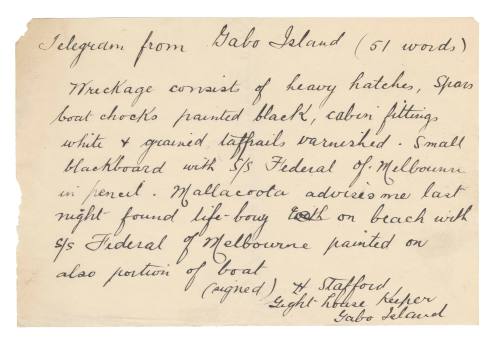 Telegram from Gabo Island (51 words)
Wreckage consists of heavy hatches, Spars
boat chocks painted black, cabin fittings
white & grained taffrails varnished. Small
blackboard with S/S Federal of Melbourne
in pencil. Mallacoota advises me last
night found life-bouy on beach with
S/S Federal of Melbourne painted on
also portion of boat
(signed) H Stafford
Light house Keeper
Gabo Island